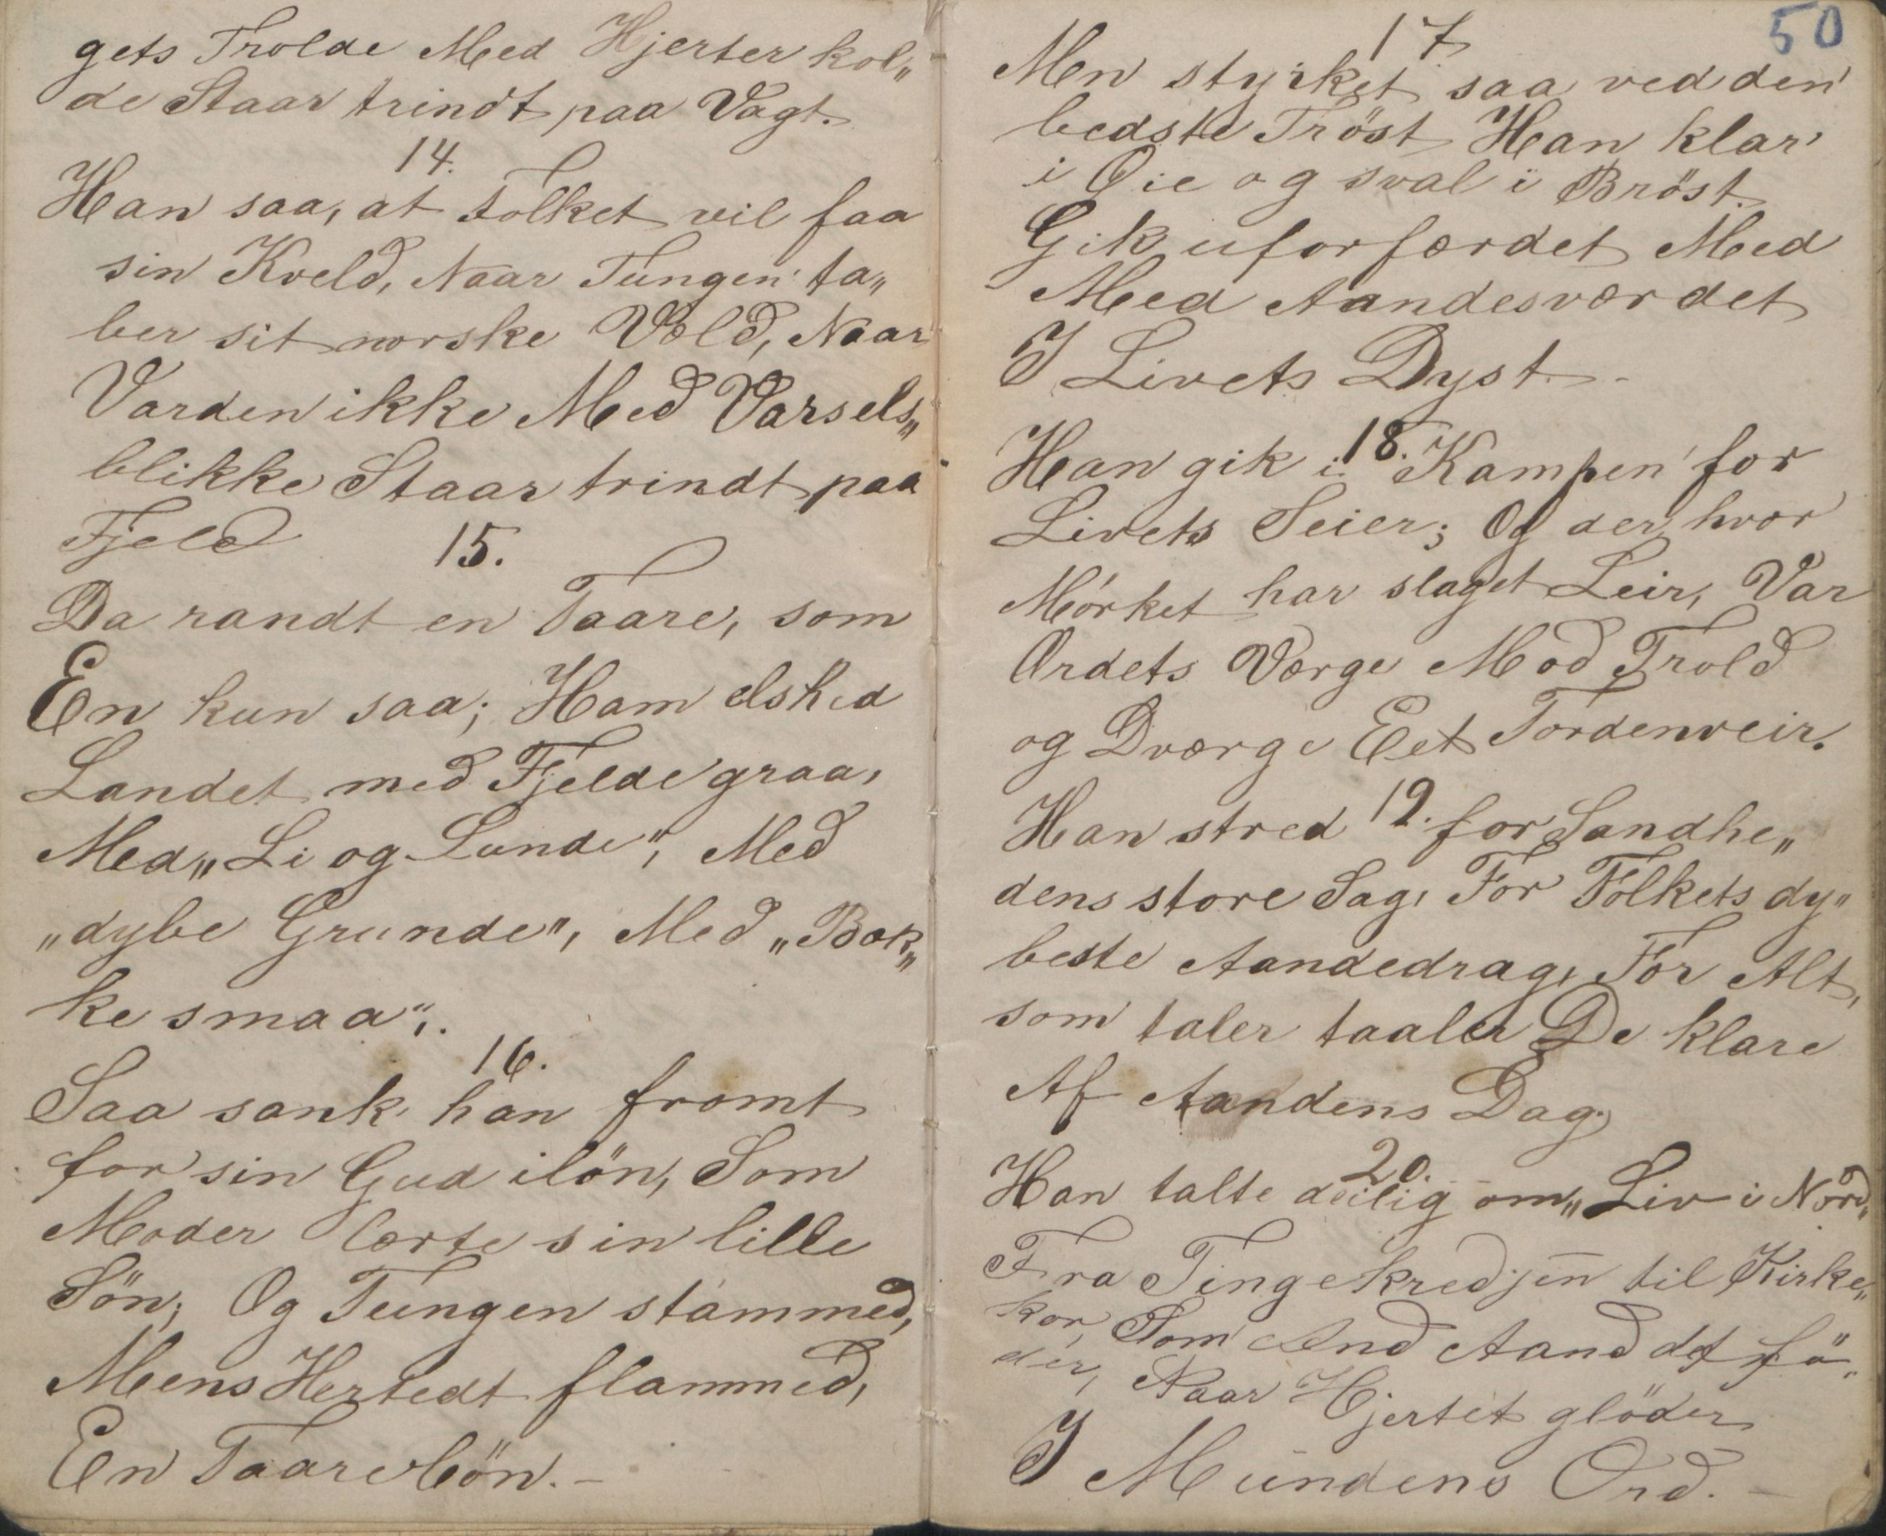 gets Trolde Med Hjerter kol„
de Staar trindt paa Vagt.
14.
Han saa, at Folket vil faa
sin Kveld, Naar Tungen ta„
ber sit norske Væld, Naar
Varden ikke Med Varsels„
blikke Staar trindt paa
Fjeld
15.
Da randt en Taare, som
En kun saa; Ham elsked
Landet med Fjelde graa,
Med „Li og Lunde“, Med
„dybe Grunde“, Med „Bæk„
ke smaa“.
16.
Saa sank han fromt
for sin Gud ilön, Som
Moder lærte sin lille
Sön; Og Tungen stammed,
Mens Hertedt flammed,
En Taarebön.–
50
17
Men styrket saa ved den
bedste Tröst Han klar
i Öie og sval i Bröst.
Gik uforfærdet Med
Med Aandesværdet
I Livets Dyst.–
18.
Han gik i Kampen for
Livets Seier; Og der, hvor
Mörket har slaget Leir, Var
Ordets Værge Mod Trold
og Dværge Eet Tordenveir.
19.
Han stred for Sandhe„
dens store Sag, For Folkets dy„
beste Aandedrag, For Alt,
som taler taaler De klare
Af Aandens Dag.
20.
Han talte deilig om „Liv i Nord„
Fra Tingekredjen til Kirke„
kor, Som And Aand det fö„
der, Naar Hjertet glöder
I Mundens Ord.–